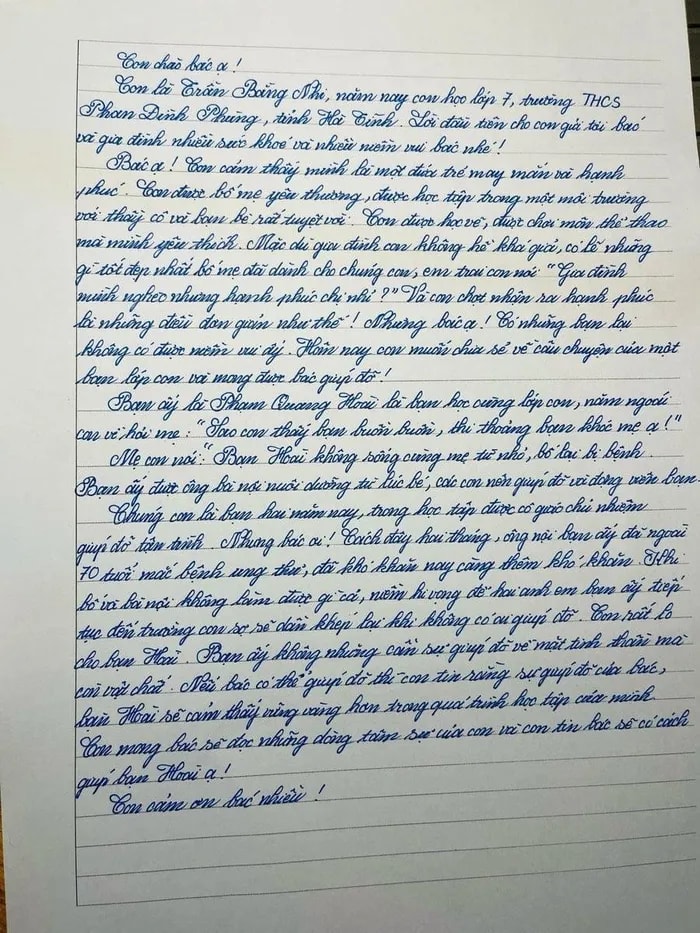 Con chào bác ạ!
Con là Trần Băng Nhi, năm nay con học lớp 7, trường THCS
Phan Đình Phùng, tỉnh Hà Tĩnh. Lời đầu tiên cho con gửi tới bác
và gia đình nhiều sức khoẻ và nhiều niềm vui bác nhé!
Bác ạ! Con cảm thấy mình là một đứa trẻ may mắn và hạnh
phúc. Con được bố mẹ yêu thương, được học tập trong một môi trường
với thầy cô và bạn bè rất tuyệt vời. Con được học vẽ, được chơi môn thể thao
mà mình yêu thích. Mặc dù gia đình con không hề khá giả, có lẽ những
gì tốt đẹp nhất bố mẹ đã dành cho chúng con, em trai con nói "Gia đình
mình nghèo nhưng hạnh phúc chị nhỉ?" Và con chợt nhận ra hạnh phúc
là những điều đơn giản như thế! Nhưng bác ạ! Có những bạn lại
không có được niềm vui ấy. Hôm nay con muốn chia sẻ về câu chuyện của một
bạn lớp con và mong được bác giúp đỡ!
Bạn ấy là Phạm Quang Hoài là bạn học cùng lớp con, năm ngoái
con về hỏi mẹ: "Sao con thấy bạn buồn buồn, thi thoảng bạn khóc mẹ ạ!"
Mẹ con nói: "Bạn Hoài không sống cùng mẹ từ nhỏ, bố lại bị bệnh.
Bạn ấy được ông bà nội nuôi dưỡng từ lúc bé, các con nên giúp đỡ và động viên bạn.
Chúng con là bạn hai năm nay, trong học tập được cô giáo chủ nhiệm
giúp đỡ tận tình. Nhưng bác ơi! Cách đây hai tháng, ông nội bạn ấy đã ngoài
70 tuổi mắc bệnh ung thư, đã khó khăn nay càng thêm khó khăn. Khi
bố và bà nội không làm được gì cả, niềm hi vọng để hai anh em bạn ấy tiếp
tục đến trường con sợ sẽ dần khép lại khi không có ai giúp đỡ. Con rất lo
cho bạn Hoài. Bạn ấy không những cần sự giúp đỡ về mặt tinh thần mà
còn vật chất. Nếu bác có thể giúp đỡ thì con tin rằng sự giúp đỡ của bác,
bạn Hoài sẽ cảm thấy vững vàng hơn trong quá trình học tập của mình
Con mong bác sẽ đọc những dòng tâm sự của con và con tin bác sẽ có cách
giúp bạn Hoài ạ!
Con cảm ơn bác nhiều!